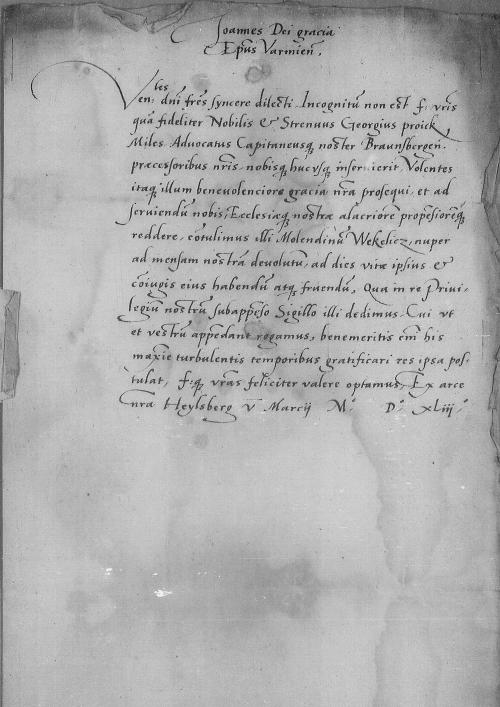 Joannes Dei gracia
Ep̃us Varmieñ.
Ven: les dn̄i fr̄es syncere dilecti. Incognitū non est f: vr̄is
quā fideliter Nobilis & Strenuus Georgius proick
Miles Advocatus Capitaneusq̨ noster Braunsbergeñ.
præcessoribus nr̄is nobisq̨ hucusq̨ inser: ierit. Volentes
itaq̨ illum benevolenciore gracia nr̄a prosequi, et ad
serviendū nobis, Ecclesiæq̨ nostræ alacriorē propēsiorēq̨
reddere, cōtulimus illi Molendinū Wekelicz, nuper
ad mensam nostrā devolutū, ad dies vitæ ipsius &
cōiugis eius habendū atq̨ fruendū, Qua in re Privi-
legiū nostrū subappēso Sigillo illi dedimus. Cui ut
et vestrū appendant rogamus, benemeritis em̄ his
maxīe turbulentis temporibus gratificari res ipsa pos-
tulat, f:q̨ vr̄as feliciter valere optamus, Ex arce
nr̄a Heylsberg V Marcij M° D° xliij°